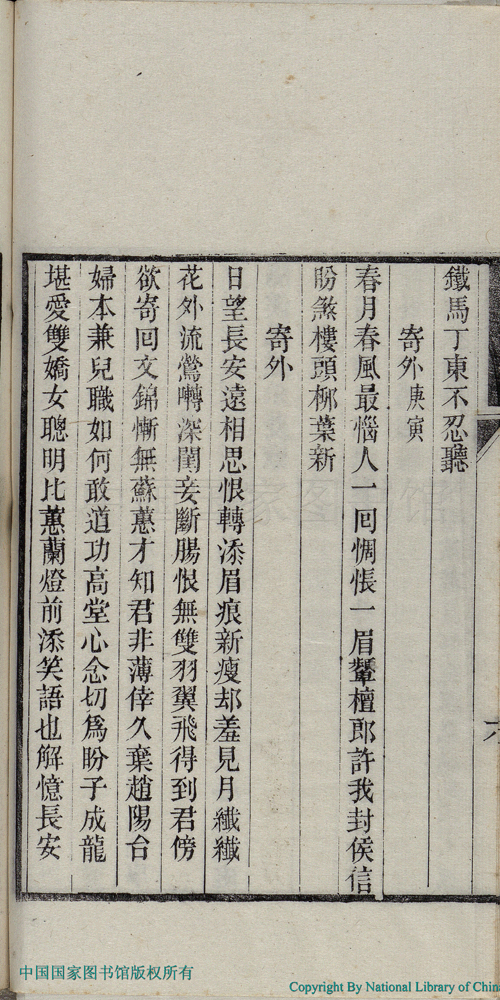 鐵馬丁東不忍聽
寄外庚寅
春月春風最惱人一回惆悵一眉顰檀郎許我封侯信
盼煞樓頭栁葉新
寄外
日望長安遠相思恨轉添眉痕新瘦却羞見月纖纖
花外流鶯囀深閨妾斷腸恨無雙羽翼飛得到君傍
欲寄回文錦慚無蘇蕙才知君非薄倖久棄趙陽台
婦本兼兒職如何敢道功高堂心念切爲盼子成龍
堪愛雙嬌女聰明比蕙蘭燈前添笑語也解憶長安
中国国家图书馆版权所有
Copyright By National Library of Chin